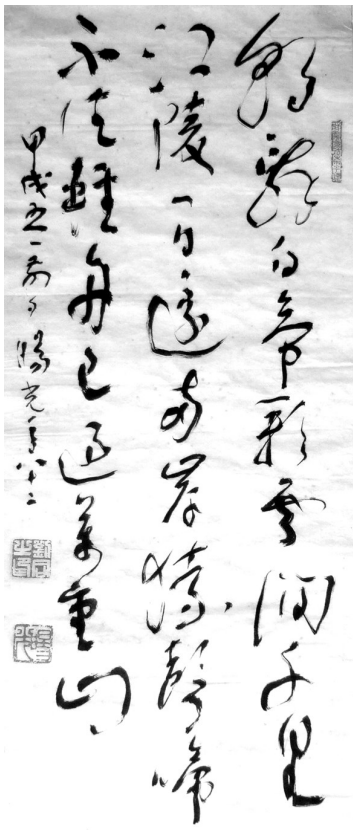 朝辭白帝彩雲間千里
江陵一日還兩岸猿聲啼
不住輕舟已過萬重山
甲戌五一前夕光年八十二